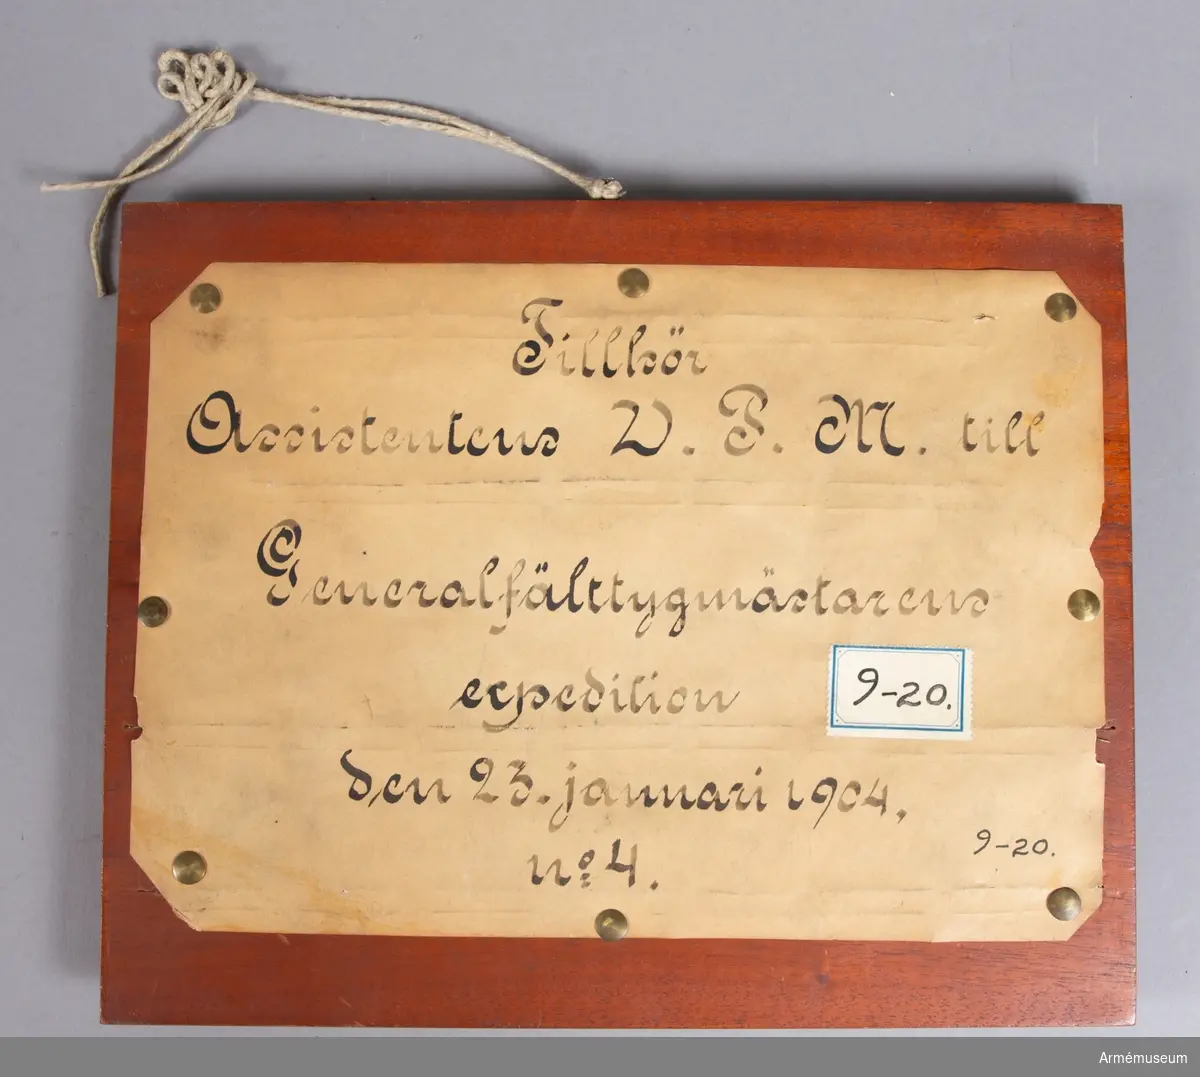 Tillhör
Assistentens V. P. M. till
Generalfälttygmästarens
expedition
9-20.
den 23. januari 1904.
no 4.
9-20.
Armémuseum